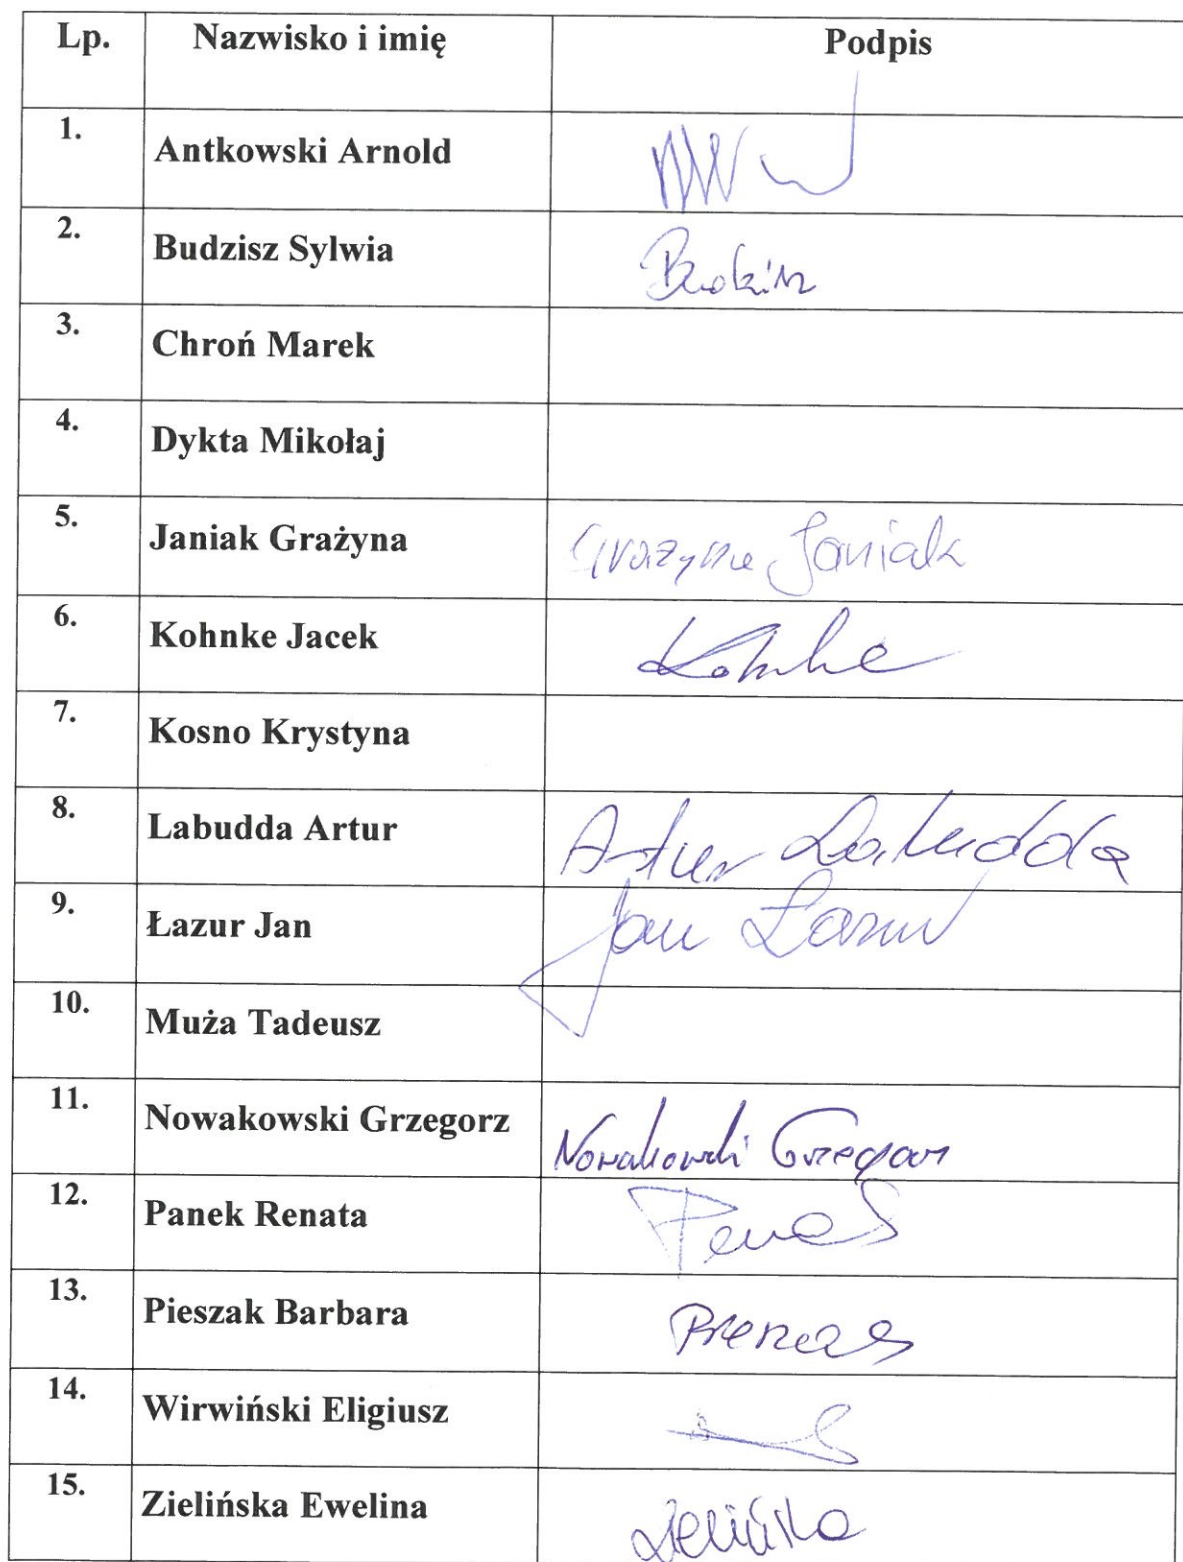 Lp. Nazwisko i imię Podpis
1. Antkowski Arnold
2. Budzisz Sylwia Budzisz
3. Chroń Marek
4. Dykta Mikołaj
5. Janiak Grażyna Grażyna Janiak
6. Kohnke Jacek Kohnke
7. Kosno Krystyna
8. Labudda Artur Artur Labudda
9. Łazur Jan Jan Łazur
10. Muża Tadeusz
11. Nowakowski Grzegorz Nowakowski Grzegorz
12. Panek Renata
13. Pieszak Barbara
14. Wirwiński Eligiusz
15. Zielińska Ewelina Zielińska